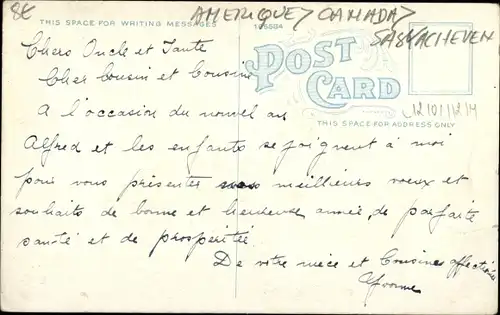 8€
AMERIQUE / CANADA /
SASKACHEVEN
THIS SPACE FOR WRITING MESSAGES
106504
POST
CARD
THIS SPACE FOR ADDRESS ONLY
Chers Oncle et Tante
Cher Cousin et Cousine
A l'occasion du nouvel an
Alfred et les enfants se joignent à moi
pour vous présenter nos meilleurs voeux et
souhaits de bonne et heureuse année, de parfaite
santé et de prospéritée
De votre nièce et Cousine affectionée
Yvonne